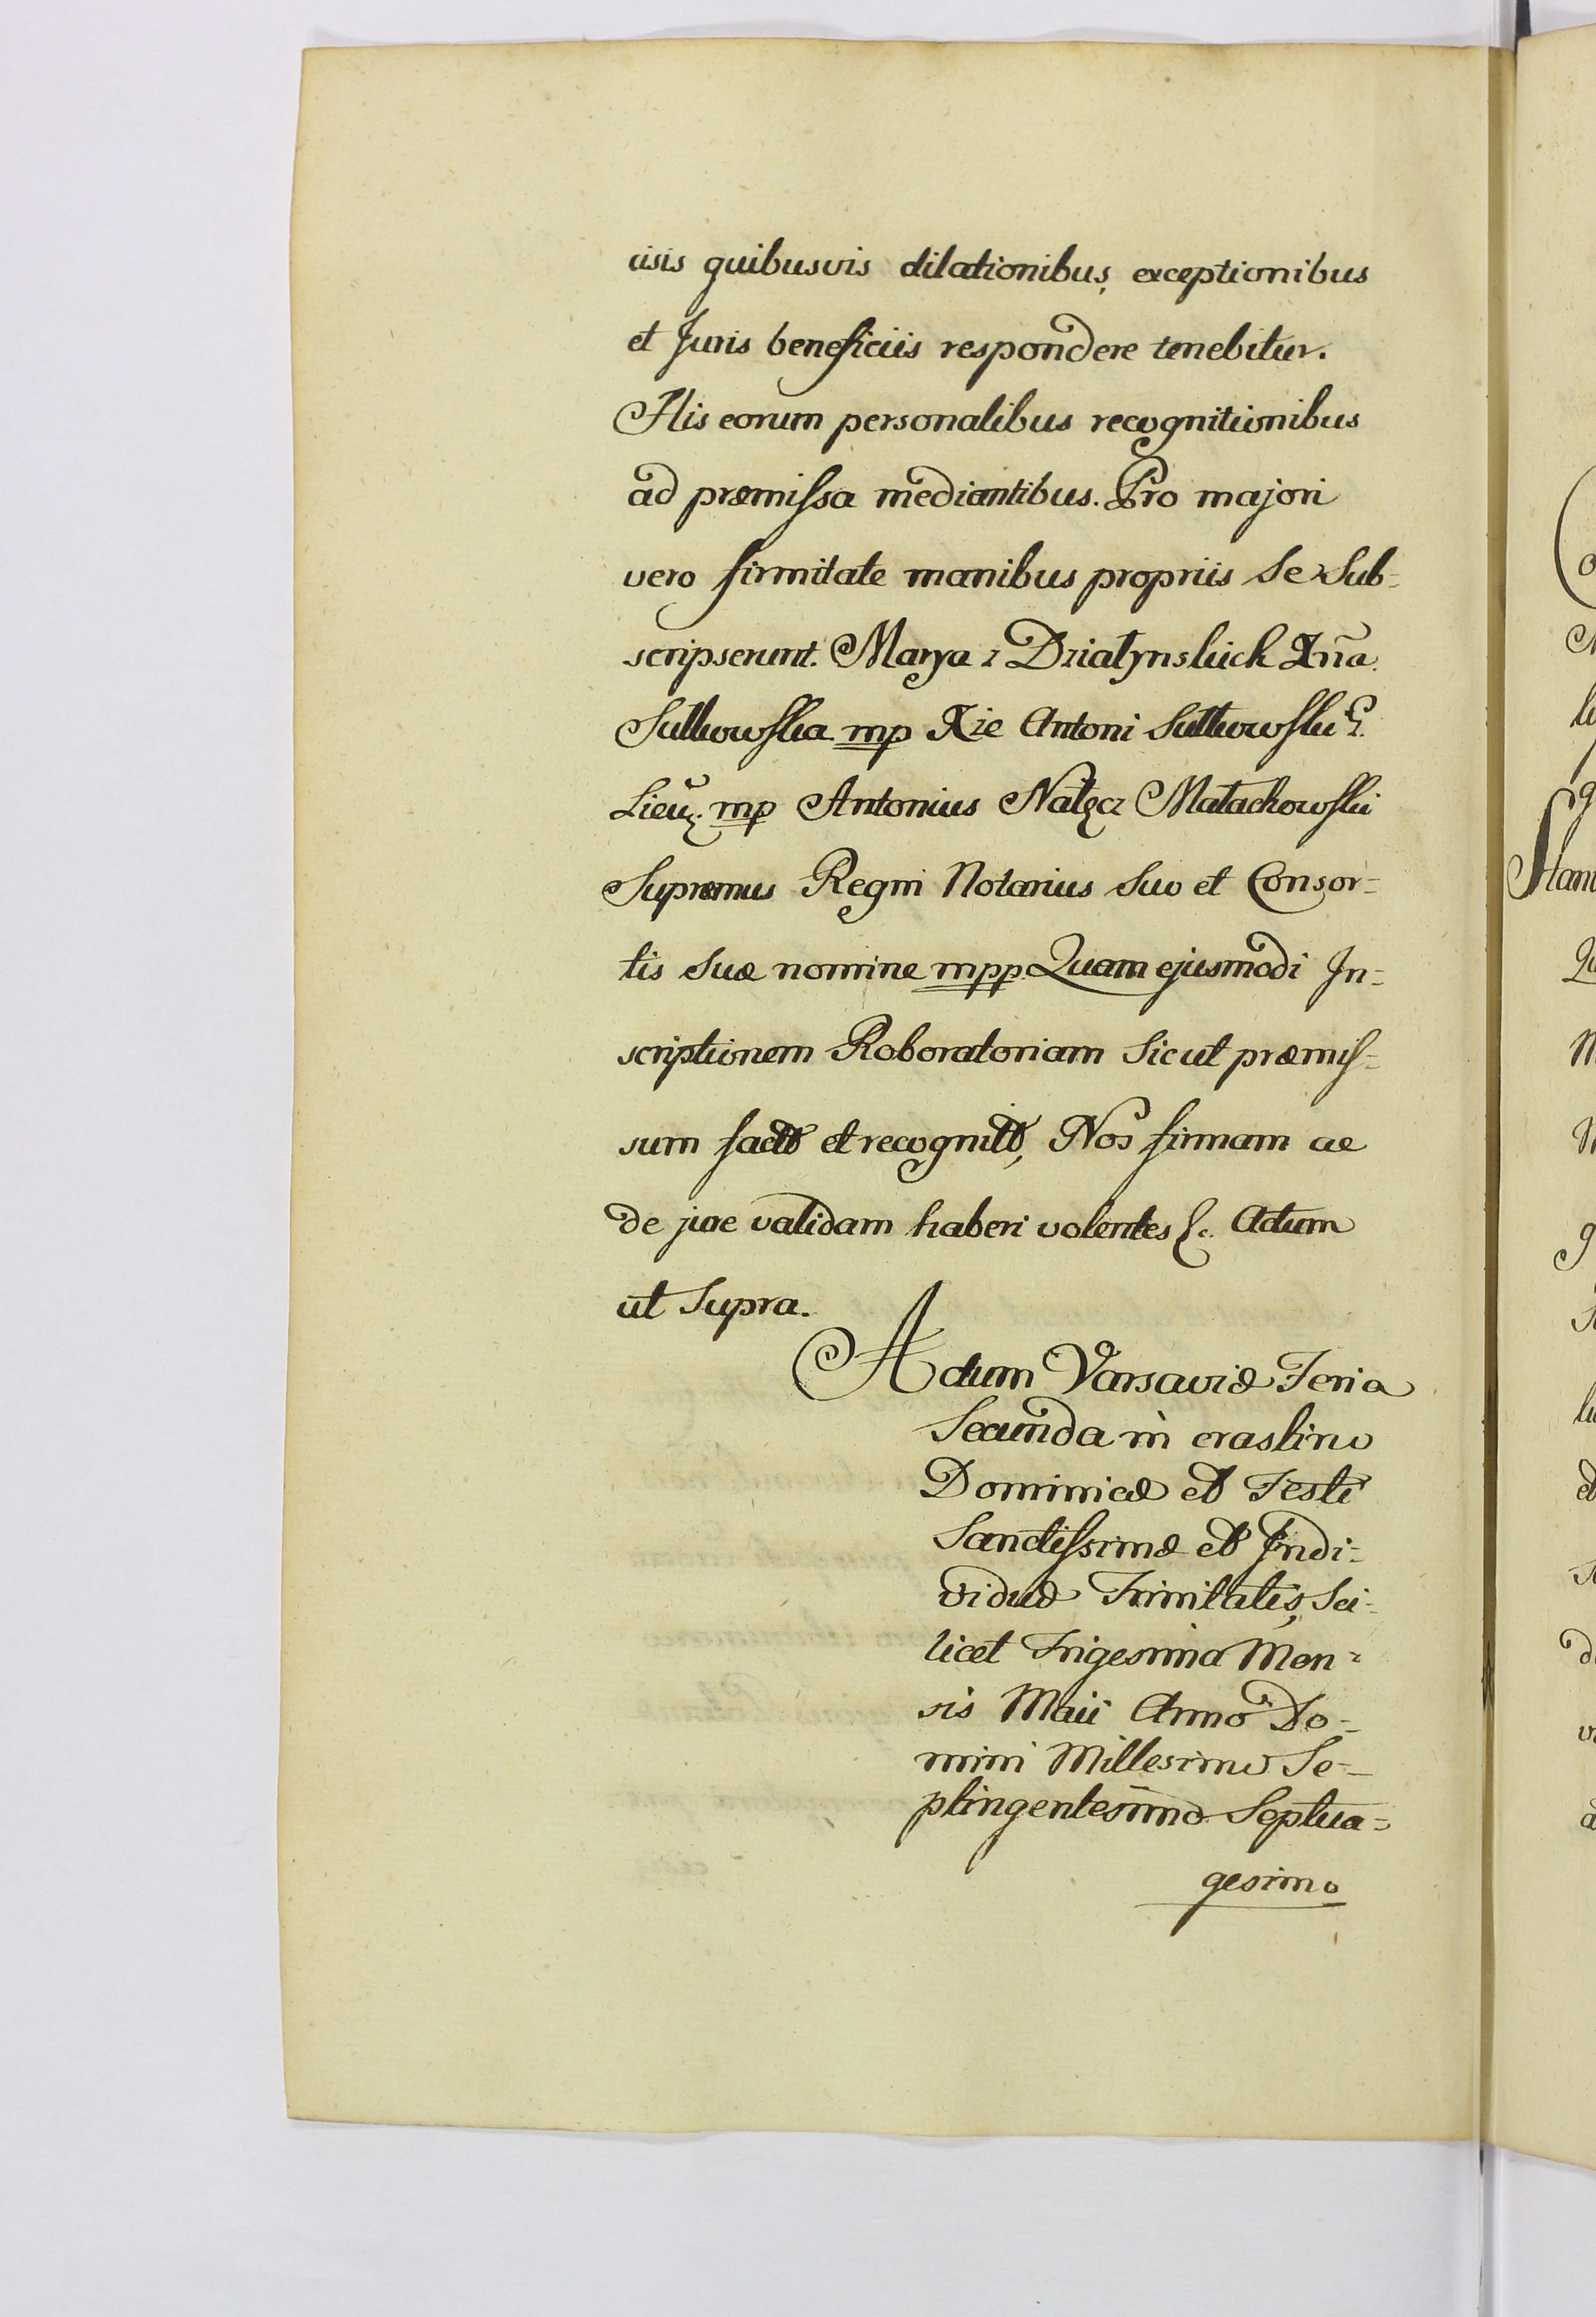 cisis quibusvis dilationibus, exceptionibus
et Juris beneficiis respondere tenebitur.
His eorum personalibus recognitionibus
ad præmissa mediantibus. Pro majori
vero firmitate manibus propriis se sub-
scripserunt. Marya z Działynskich Xña.
Sułkowska mp Xże Antoni Sułkowski G.
Lieu: mp Antonius Nałęcz Małachowski
Supremus Regni Notarius suo et Consor=
tis suæ nomine mpp. Quam ejusmodi In=
scriptionem Roboratoriam sicut præmis=
sum facto et recognito, Nos firmam ac
de jure validam haberi volentes &c. Actum
ut supra.
Actum Varsaviæ Feria
Secunda in crastino
Dominicæ et Festi
Sanctissimæ et Indi=
viduæ Trinitatis, Sci=
licet Trigesima Men=
sis Maii Anno Do=
mini Millesimo Se=
ptingentesimo Septua=
gesimo